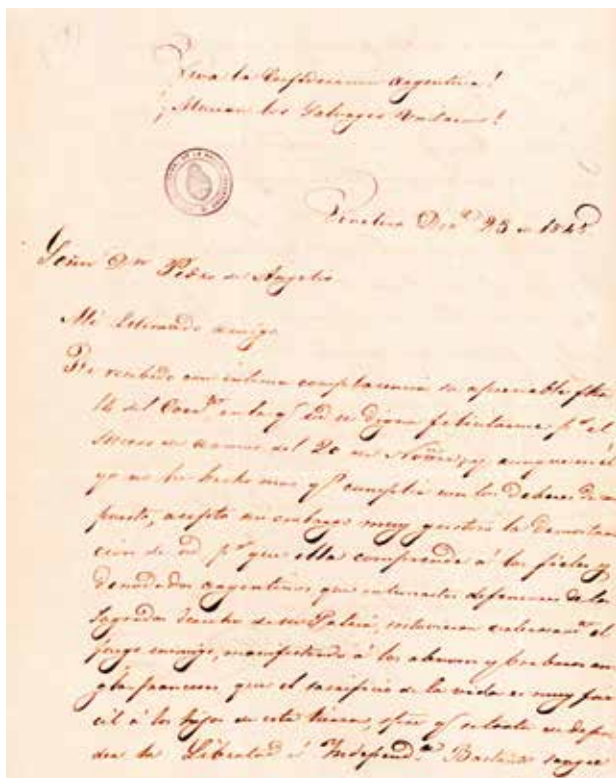 ¡Viva la Confederacion Argentina!
¡Mueran los Salvages Unitarios!
Dic.e 23 de 1845
Señor D.n Pedro de Angelis
Mi Estimado amigo
He recibido con intima complacencia su apreciable fha
14 del Corr.te en la q.e Vd se digna felicitarme p.r el
suceso de armas del 20 de Nov.re, y aunque en él
yo no he hecho mas q.e cumplir con los deberes de mi
puesto, acepto sin embargo muy gustoso la demostra
cion de Vd. p.r que ella comprende á los fieles y
denodados argentinos que defensores de los
sagrados derechos de su Patria, sostuvieron el
fuego enemigo, manifestando á los
glo franceses, que el sacrificio de la vida es muy fa
cil á los hijos de esta tierra, q.e se trata de defen
der la Libertad é Independ.a Bastante sangre